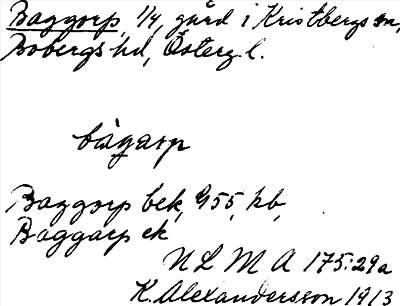 Baggorp, 1/4, gård i Kristbergs sn,
Bobergs hd, Österg. l.
bàgarp
Baggorp bek, G55, hb,
Baggarp ek
N L M A 175:29a
K. Alexandersson 1913